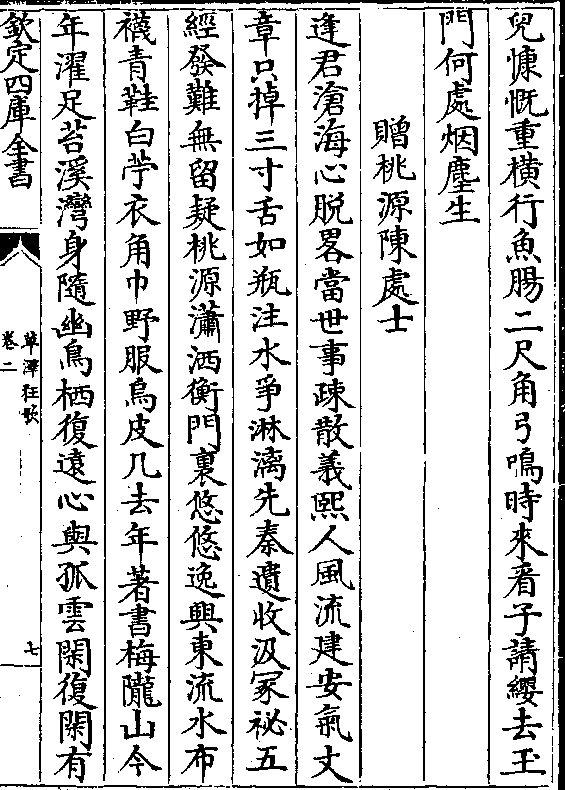 兒慷慨重横行魚腸二尺角弓鳴時來看子請纓去玉
門何處烟塵生
贈桃源陳處士
逢君滄海心脱畧當世事疎散義熙人風流建安氣丈
章只掉三寸舌如瓶注水爭淋漓先秦遺收汲冢祕五
經發難無留疑桃源瀟洒衡門裏悠悠逸興東流水布
襪青鞋白苧衣角巾野服烏皮几去年著書梅隴山今
年濯足苕溪灣身隨幽鳥栖復遠心與孤雲閑復閑有
欽定四庫全書
草澤狂歌
卷二
七